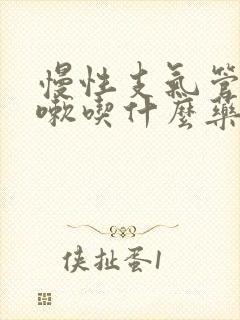 慢性支氣管
嗽喫什麼藥
侠扯蛋1